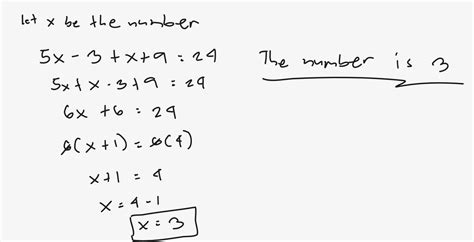 let x be the number
5x - 3 + x + 9 = 24
5x + x - 3 + 9 = 24
6x + 6 = 24
6(x + 1) = 6(4)
x + 1 = 4
x = 4 - 1
x = 3
The number is 3